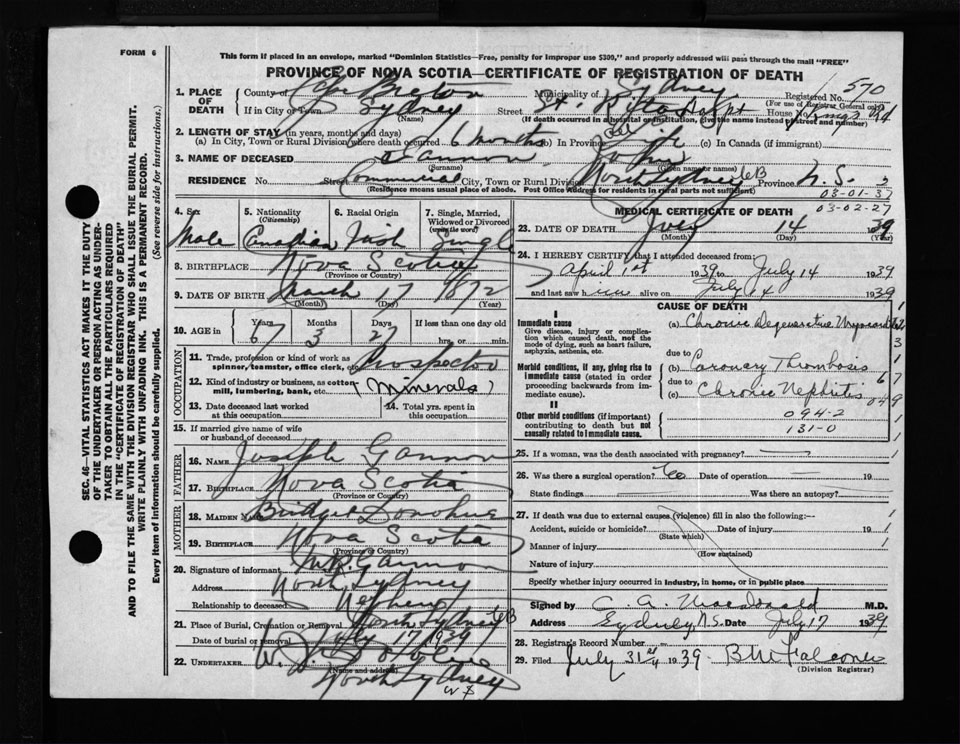 FORM 6
This form if placed in an envelope, marked "Dominion Statistics—Free, penalty for improper use $300," and properly addressed will pass through the mail "FREE"
PROVINCE OF NOVA SCOTIA—CERTIFICATE OF REGISTRATION OF DEATH
570
1. PLACE OF DEATH County of Municipality of Sydney Registered No.
(For use of Registrar General only)
If in City or Town Sydney Street St. Hospt House No.
(Name) (If death occurred in a hospital or institution, give the name instead of street and number)
2. LENGTH OF STAY (in years, months and days)
(a) In City, Town or Rural Division where death occurred 6 months (b) In Province Life (c) In Canada (if immigrant)
3. NAME OF DECEASED Gannon John
(Surname) (Given or names)
RESIDENCE No. Street Commercial City, Town or Rural Division North Sydney CB Province N.S.
(Residence means usual place of abode. Post Office Address for residents in rural parts not sufficient)
03-01-37
03-02-27
4. Sex 5. Nationality (Citizenship) 6. Racial Origin 7. Single, Married, Widowed or Divorced (write the word)
Male Canadian Irish Single
8. BIRTHPLACE Nova Scotia
(Province or Country)
9. DATE OF BIRTH March 17 1872
(Month) (Day) (Year)
10. AGE in Years Months Days If less than one day old
67 3 27 hrs. or min.
OCCUPATION
11. Trade, profession or kind of work as spinner, teamster, office clerk, etc. Prospector
12. Kind of industry or business, as cotton mill, lumbering, bank, etc. (Minerals)
13. Date deceased last worked at this occupation 14. Total yrs. spent in this occupation
15. If married give name of wife or husband of deceased
FATHER
16. NAME Joseph Gannon
17. Birthplace Nova Scotia
(Province or Country)
MOTHER
18. MAIDEN NAME Bridget Donohue
19. BIRTHPLACE Nova Scotia
(Province or Country)
20. Signature of informant Gannon
Address North Sydney
Relationship to deceased Nephew
21. Place of Burial, Cremation or Removal North Sydney CB
Date of burial or removal July 17 1939
22. UNDERTAKER
(Name and address)
North Sydney
MEDICAL CERTIFICATE OF DEATH
23. DATE OF DEATH July 14 1939
(Month) (Day) (Year)
24. I HEREBY CERTIFY that I attended deceased from:
April 1st 1939 to July 14 1939
and last saw him alive on July 14 1939
CAUSE OF DEATH
I
Immediate cause
Give disease, injury or complication which caused death, not the mode of dying, such as heart failure, asphyxia, asthenia, etc.
(a) Chronic Degenerative
due to
Morbid conditions, if any, giving rise to immediate cause (stated in order proceeding backwards from immediate cause).
(b) Coronary Thrombosis
due to
(c) Chronic Nephritis
II
Other morbid conditions (if important) contributing to death but not causally related to immediate cause.
094-2
131-0
25. If a woman, was the death associated with pregnancy?
26. Was there a surgical operation? Date of operation 19
State findings Was there an autopsy?
27. If death was due to external causes (violence) fill in also the following:—
Accident, suicide or homicide? Date of injury 19
(State which)
Manner of injury
(How sustained)
Nature of injury
Specify whether injury occurred in industry, in home, or in public place
Signed by C. A. Macdonald M.D.
Address Sydney, N.S. Date July 17 1939
28. Registrar's Record Number
29. Filed July 31st 1939 B Falconer
(Division Registrar)
SEC. 46—VITAL STATISTICS ACT MAKES IT THE DUTY
OF THE UNDERTAKER OR PERSON ACTING AS UNDER-
TAKER TO OBTAIN ALL THE PARTICULARS REQUIRED
IN THE "CERTIFICATE OF REGISTRATION OF DEATH"
AND TO FILE THE SAME WITH THE DIVISION REGISTRAR WHO SHALL ISSUE THE BURIAL PERMIT.
WRITE PLAINLY WITH UNFADING INK. THIS IS A PERMANENT RECORD.
Every item of information should be carefully supplied. (See reverse side for instructions.)